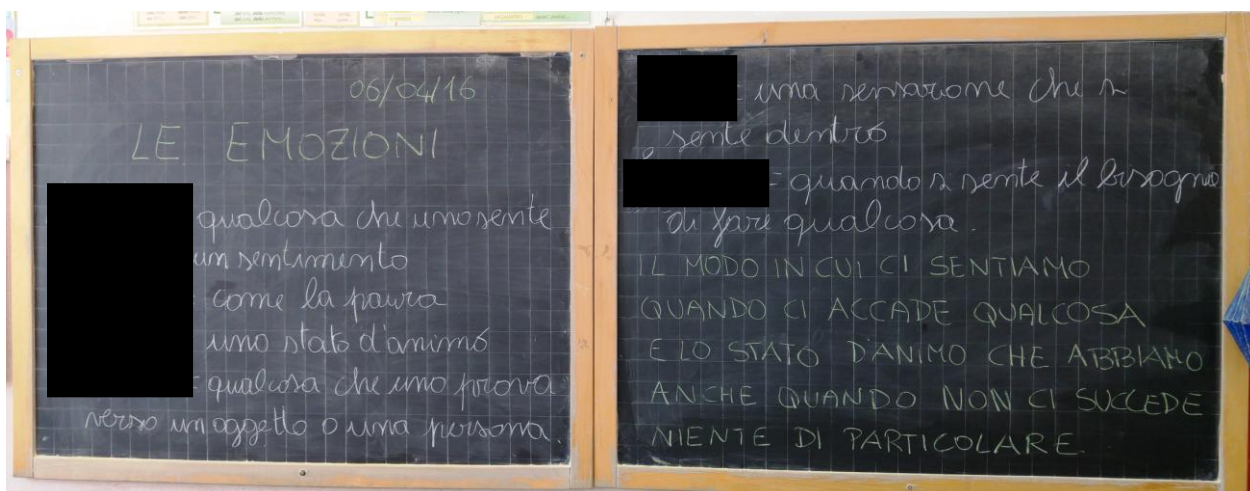 06/04/16
LE EMOZIONI
qualcosa che uno sente
un sentimento
= come la paura
uno stato d'animo
= qualcosa che uno prova
verso un oggetto o una persona.
= una sensazione che si
sente dentro
= quando si sente il bisogno
di fare qualcosa.
IL MODO IN CUI CI SENTIAMO
QUANDO CI ACCADE QUALCOSA
E LO STATO D'ANIMO CHE ABBIAMO
ANCHE QUANDO NON CI SUCCEDE
NIENTE DI PARTICOLARE.